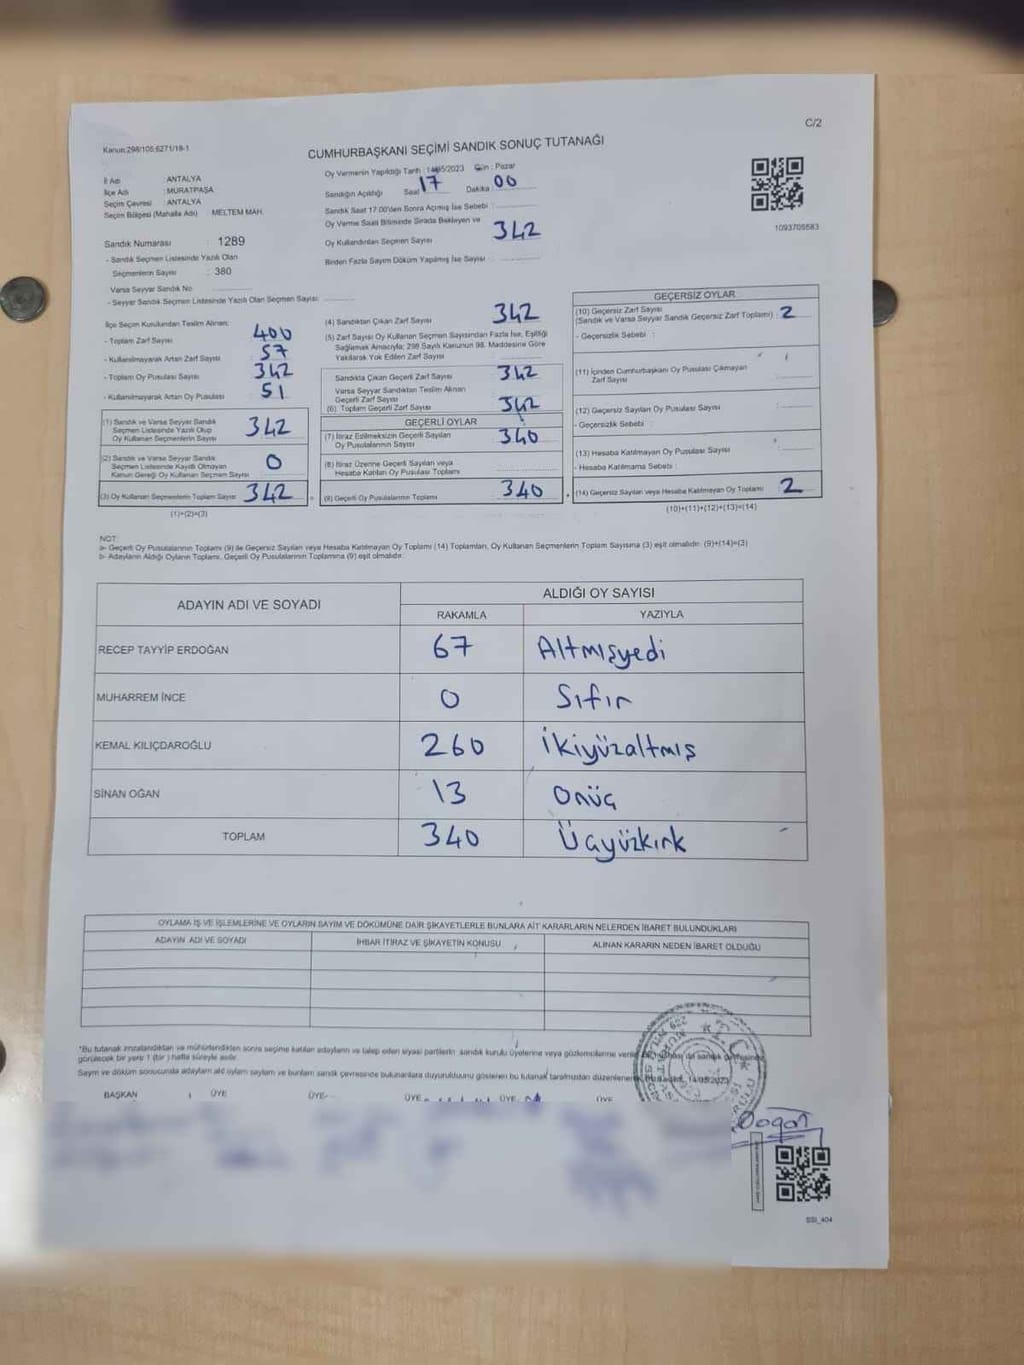 C/2
Kanun:298/105:6271/18-1
CUMHURBAŞKANI SEÇİMİ SANDIK SONUÇ TUTANAĞI
İl Adı : ANTALYA
İlçe Adı : MURATPAŞA
Seçim Çevresi : ANTALYA
Seçim Bölgesi (Mahalle Adı) MELTEM MAH.
Sandık Numarası : 1289
- Sandık Seçmen Listesinde Yazılı Olan
Seçmenlerin Sayısı : 380
Varsa Seyyar Sandık No :
- Seyyar Sandık Seçmen Listesinde Yazılı Olan Seçmen Sayısı:
Oy Vermenin Yapıldığı Tarih : 14/05/2023 Gün : Pazar
Sandığın Açıldığı Saat 17 Dakika 00
Sandık Saat 17.00'den Sonra Açılmış İse Sebebi :
Oy Verme Saati Bitiminde Sırada Bekleyen ve
Oy Kullandırılan Seçmen Sayısı 342
Birden Fazla Sayım Döküm Yapılmış İse Sayısı :
1093705583
İlçe Seçim Kurulundan Teslim Alınan:
- Toplam Zarf Sayısı 400
- Kullanılmayarak Artan Zarf Sayısı 57
- Toplam Oy Pusulası Sayısı 342
- Kullanılmayarak Artan Oy Pusulası 51
(1) Sandık ve Varsa Seyyar Sandık
Seçmen Listesinde Yazılı Olup
Oy Kullanan Seçmenlerin Sayısı 342
(2) Sandık ve Varsa Seyyar Sandık
Seçmen Listesinde Kayıtlı Olmayan
Kanun Gereği Oy Kullanan Seçmen Sayısı 0
(3) Oy Kullanan Seçmenlerin Toplam Sayısı 342
(1)+(2)=(3)
(4) Sandıktan Çıkan Zarf Sayısı 342
(5) Zarf Sayısı Oy Kullanan Seçmen Sayısından Fazla İse, Eşitliği
Sağlamak Amacıyla; 298 Sayılı Kanunun 98. Maddesine Göre
Yakılarak Yok Edilen Zarf Sayısı
Sandıkta Çıkan Geçerli Zarf Sayısı 342
Varsa Seyyar Sandıktan Teslim Alınan
Geçerli Zarf Sayısı
(6) Toplam Geçerli Zarf Sayısı 342
GEÇERLİ OYLAR
(7) İtiraz Edilmeksizin Geçerli Sayılan
Oy Pusulalarının Sayısı 340
(8) İtiraz Üzerine Geçerli Sayılan veya
Hesaba Katılan Oy Pusulası Toplamı
(9) Geçerli Oy Pusulalarının Toplamı 340
GEÇERSİZ OYLAR
(10) Geçersiz Zarf Sayısı
(Sandık ve Varsa Seyyar Sandık Geçersiz Zarf Toplamı) : 2
- Geçersizlik Sebebi :
(11) İçinden Cumhurbaşkanı Oy Pusulası Çıkmayan
Zarf Sayısı
(12) Geçersiz Sayılan Oy Pusulası Sayısı
- Geçersizlik Sebebi :
(13) Hesaba Katılmayan Oy Pusulası Sayısı
- Hesaba Katılmama Sebebi :
(14) Geçersiz Sayılan veya Hesaba Katılmayan Oy Toplamı : 2
(10)+(11)+(12)+(13)=(14)
NOT:
a- Geçerli Oy Pusulalarının Toplamı (9) ile Geçersiz Sayılan veya Hesaba Katılmayan Oy Toplamı (14) Toplamları, Oy Kullanan Seçmenlerin Toplam Sayısına (3) eşit olmalıdır. (9)+(14)=(3)
b- Adayların Aldığı Oyların Toplamı, Geçerli Oy Pusulalarının Toplamına (9) eşit olmalıdır.
ADAYIN ADI VE SOYADI ALDIĞI OY SAYISI
RAKAMLA YAZIYLA
RECEP TAYYİP ERDOĞAN 67 Altmışyedi
MUHARREM İNCE 0 Sıfır
KEMAL KILIÇDAROĞLU 260 İkiyüzaltmış
SİNAN OĞAN 13 Onüç
TOPLAM 340 Üçyüzkırk
OYLAMA İŞ VE İŞLEMLERİNE VE OYLARIN SAYIM VE DÖKÜMÜNE DAİR ŞİKAYETLERLE BUNLARA AİT KARARLARIN NELERDEN İBARET BULUNDUKLARI
ADAYIN ADI VE SOYADI İHBAR İTİRAZ VE ŞİKAYETİN KONUSU ALINAN KARARIN NEDEN İBARET OLDUĞU
*Bu tutanak imzalandıktan ve mühürlendikten sonra seçime katılan adayların ve talep eden siyasi partilerin sandık kurulu üyelerine veya gözlemcilerine
görülecek bir yere 1 (bir) hafta süreyle asılır.
Sayım ve döküm sonucunda adayların aldığı oyların sayıları ve bunların sandık çevresinde bulunanlara duyurulduğunu gösteren bu tutanak tarafımızdan 14/05/2023
BAŞKAN ÜYE ÜYE ÜYE ÜYE ÜYE
Doğan
SSI_404